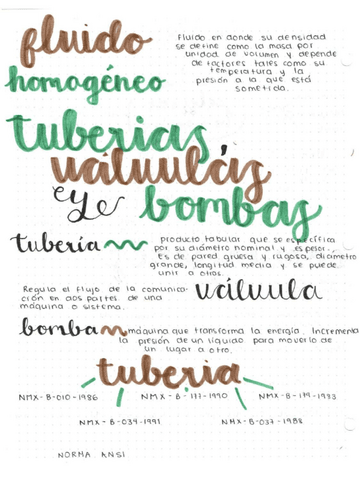 fluido
homogéneo
Fluido en donde su densidad
se define como la masa por
unidad de volumen y depende
de factores tales como su
temperatura y la
presión a la que está
sometida.
tuberias,
válvulas
e y e
bombas
tubería
producto tabular que se especifica
por su diámetro nominal y espesor.,
Es de pared gruesa y rugosa, diámetro
grande, longitud media y se puede
unir a otros.
Regula el flujo de la comunica-
ción en dos partes de una
máquina o sistema.
válvula
bomba
máquina que transforma la energía. Incrementa
la presión de un líquido para moverlo de
un lugar a otro.
tuberia
NMX-B-010-1986
NMX-B-177-1990
NMX-B-179-1983
NMX-B-034-1991
NMX-B-037-1988
NORMA ANSI